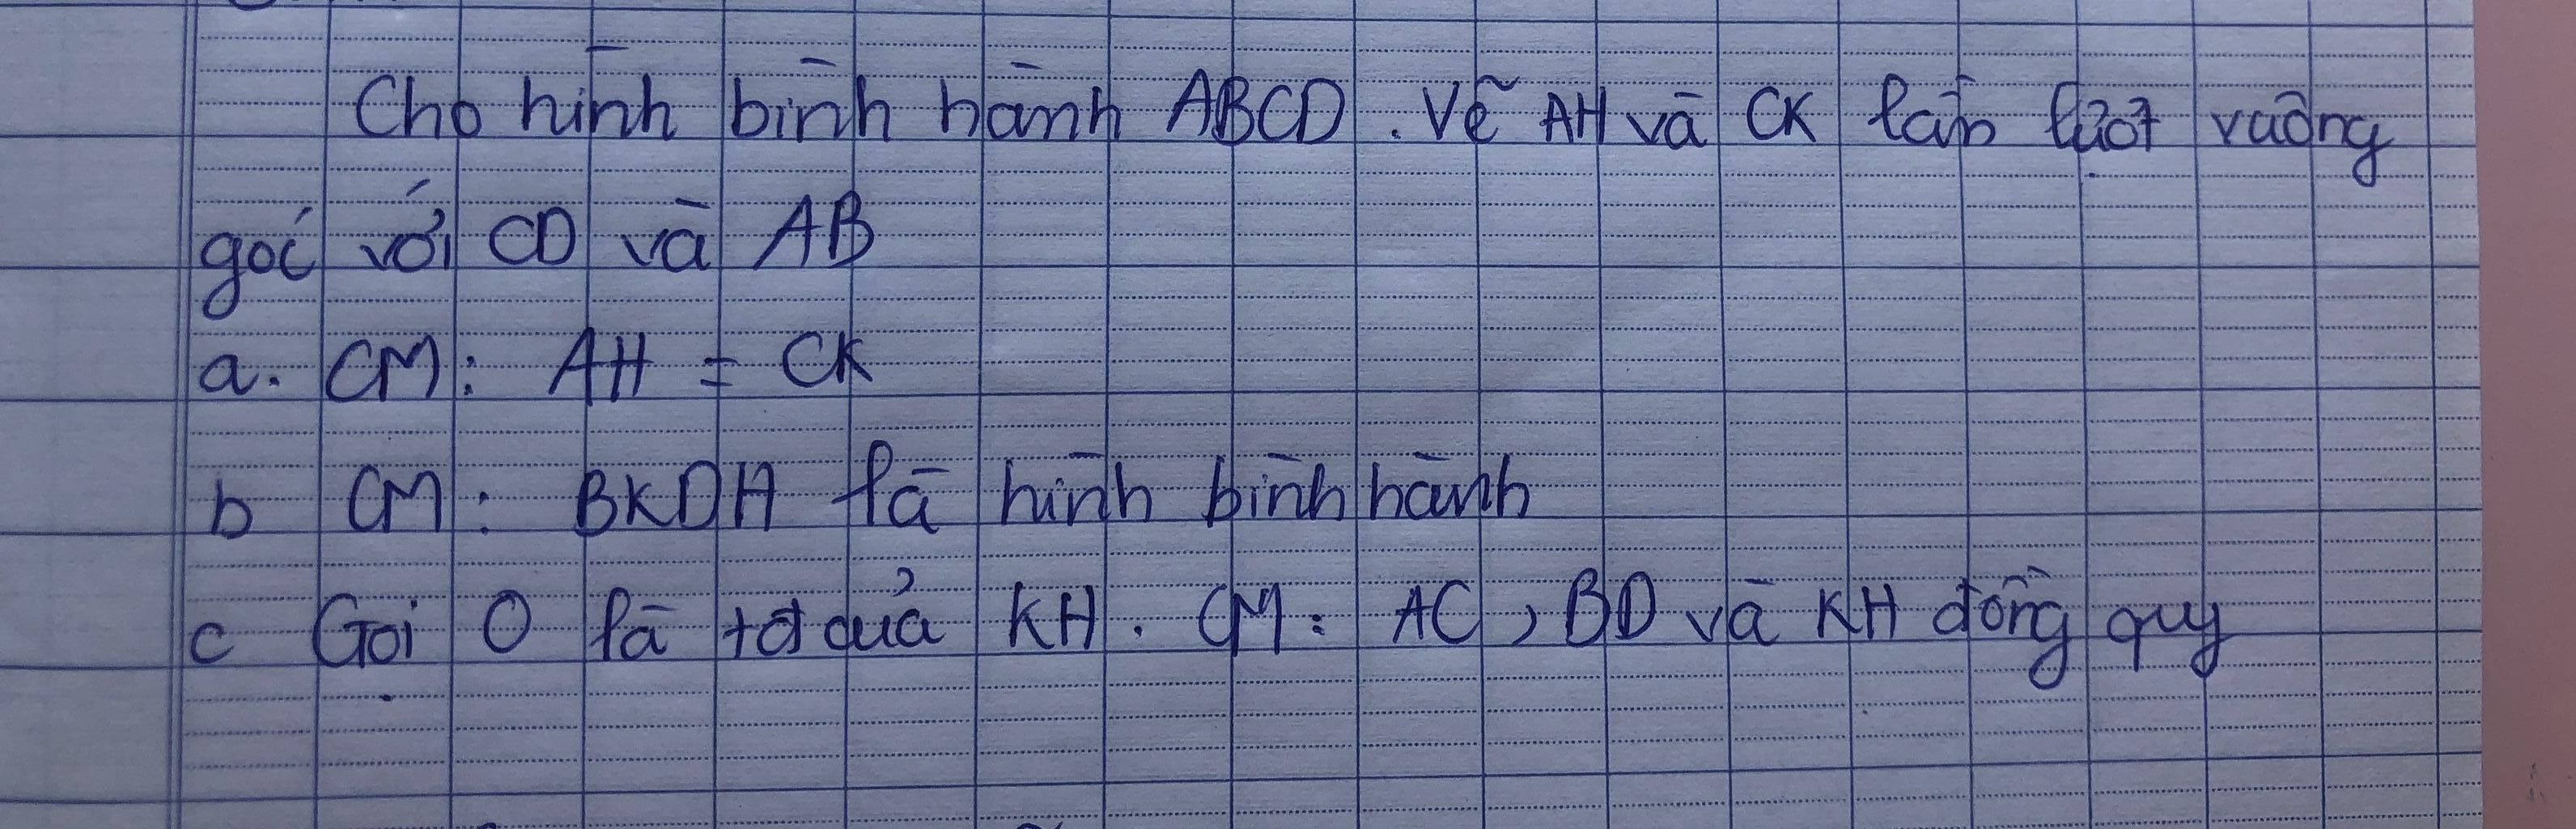 Cho hình bình hành ABCD. Vẽ AH và CK lần lượt vuông
góc với CD và AB
a. CM: AH = CK
b CM: BKDH là hình bình hành
c Gọi O là tđ của KH. CM: AC, BD và KH đồng quy